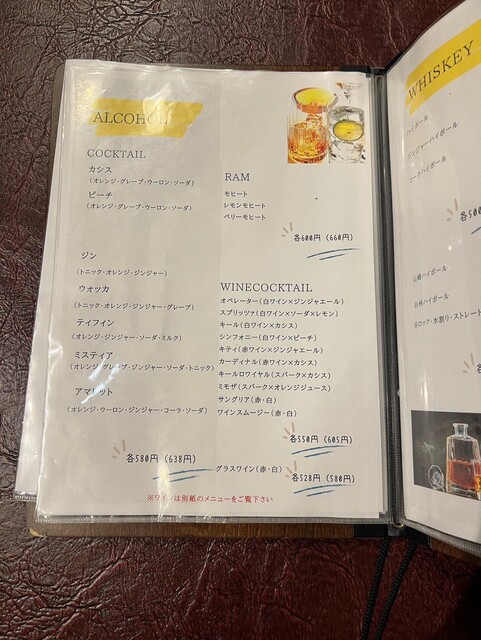 ALCOHOL
COCKTAIL
カシス
(オレンジ・グレープ・ウーロン・ソーダ)
ピーチ
(オレンジ・グレープ・ウーロン・ソーダ)
ジン
(トニック・オレンジ・ジンジャー)
ウォッカ
(トニック・オレンジ・ジンジャー・グレープ)
ティフィン
(オレンジ・ジンジャー・ソーダ・ミルク)
ミスティア
(オレンジ・グレープ・ジンジャー・ソーダ・トニック)
アマレット
(オレンジ・ウーロン・ジンジャー・コーラ・ソーダ)
各580円 (638円)
RAM
モヒート
レモンモヒート
ベリーモヒート
各600円 (660円)
WINECOCKTAIL
オペレーター(白ワイン×ジンジャエール)
スプリッツァ(白ワイン×ソーダ×レモン)
キール(白ワイン×カシス)
シンフォニー(白ワイン×ピーチ)
キティ(赤ワイン×ジンジャエール)
カーディナル(赤ワイン×カシス)
キールロワイヤル(スパーク×カシス)
ミモザ(スパーク×オレンジジュース)
サングリア(赤・白)
ワインスムージー(赤・白)
各550円 (605円)
グラスワイン(赤・白)
各528円 (580円)
※ワインは別紙のメニューをご覧下さい
WHISKEY
ハイボール
ジンジャーハイボール
コークハイボール
各500
山崎ハイボール
白州ハイボール
※ロック・水割り・ストレート